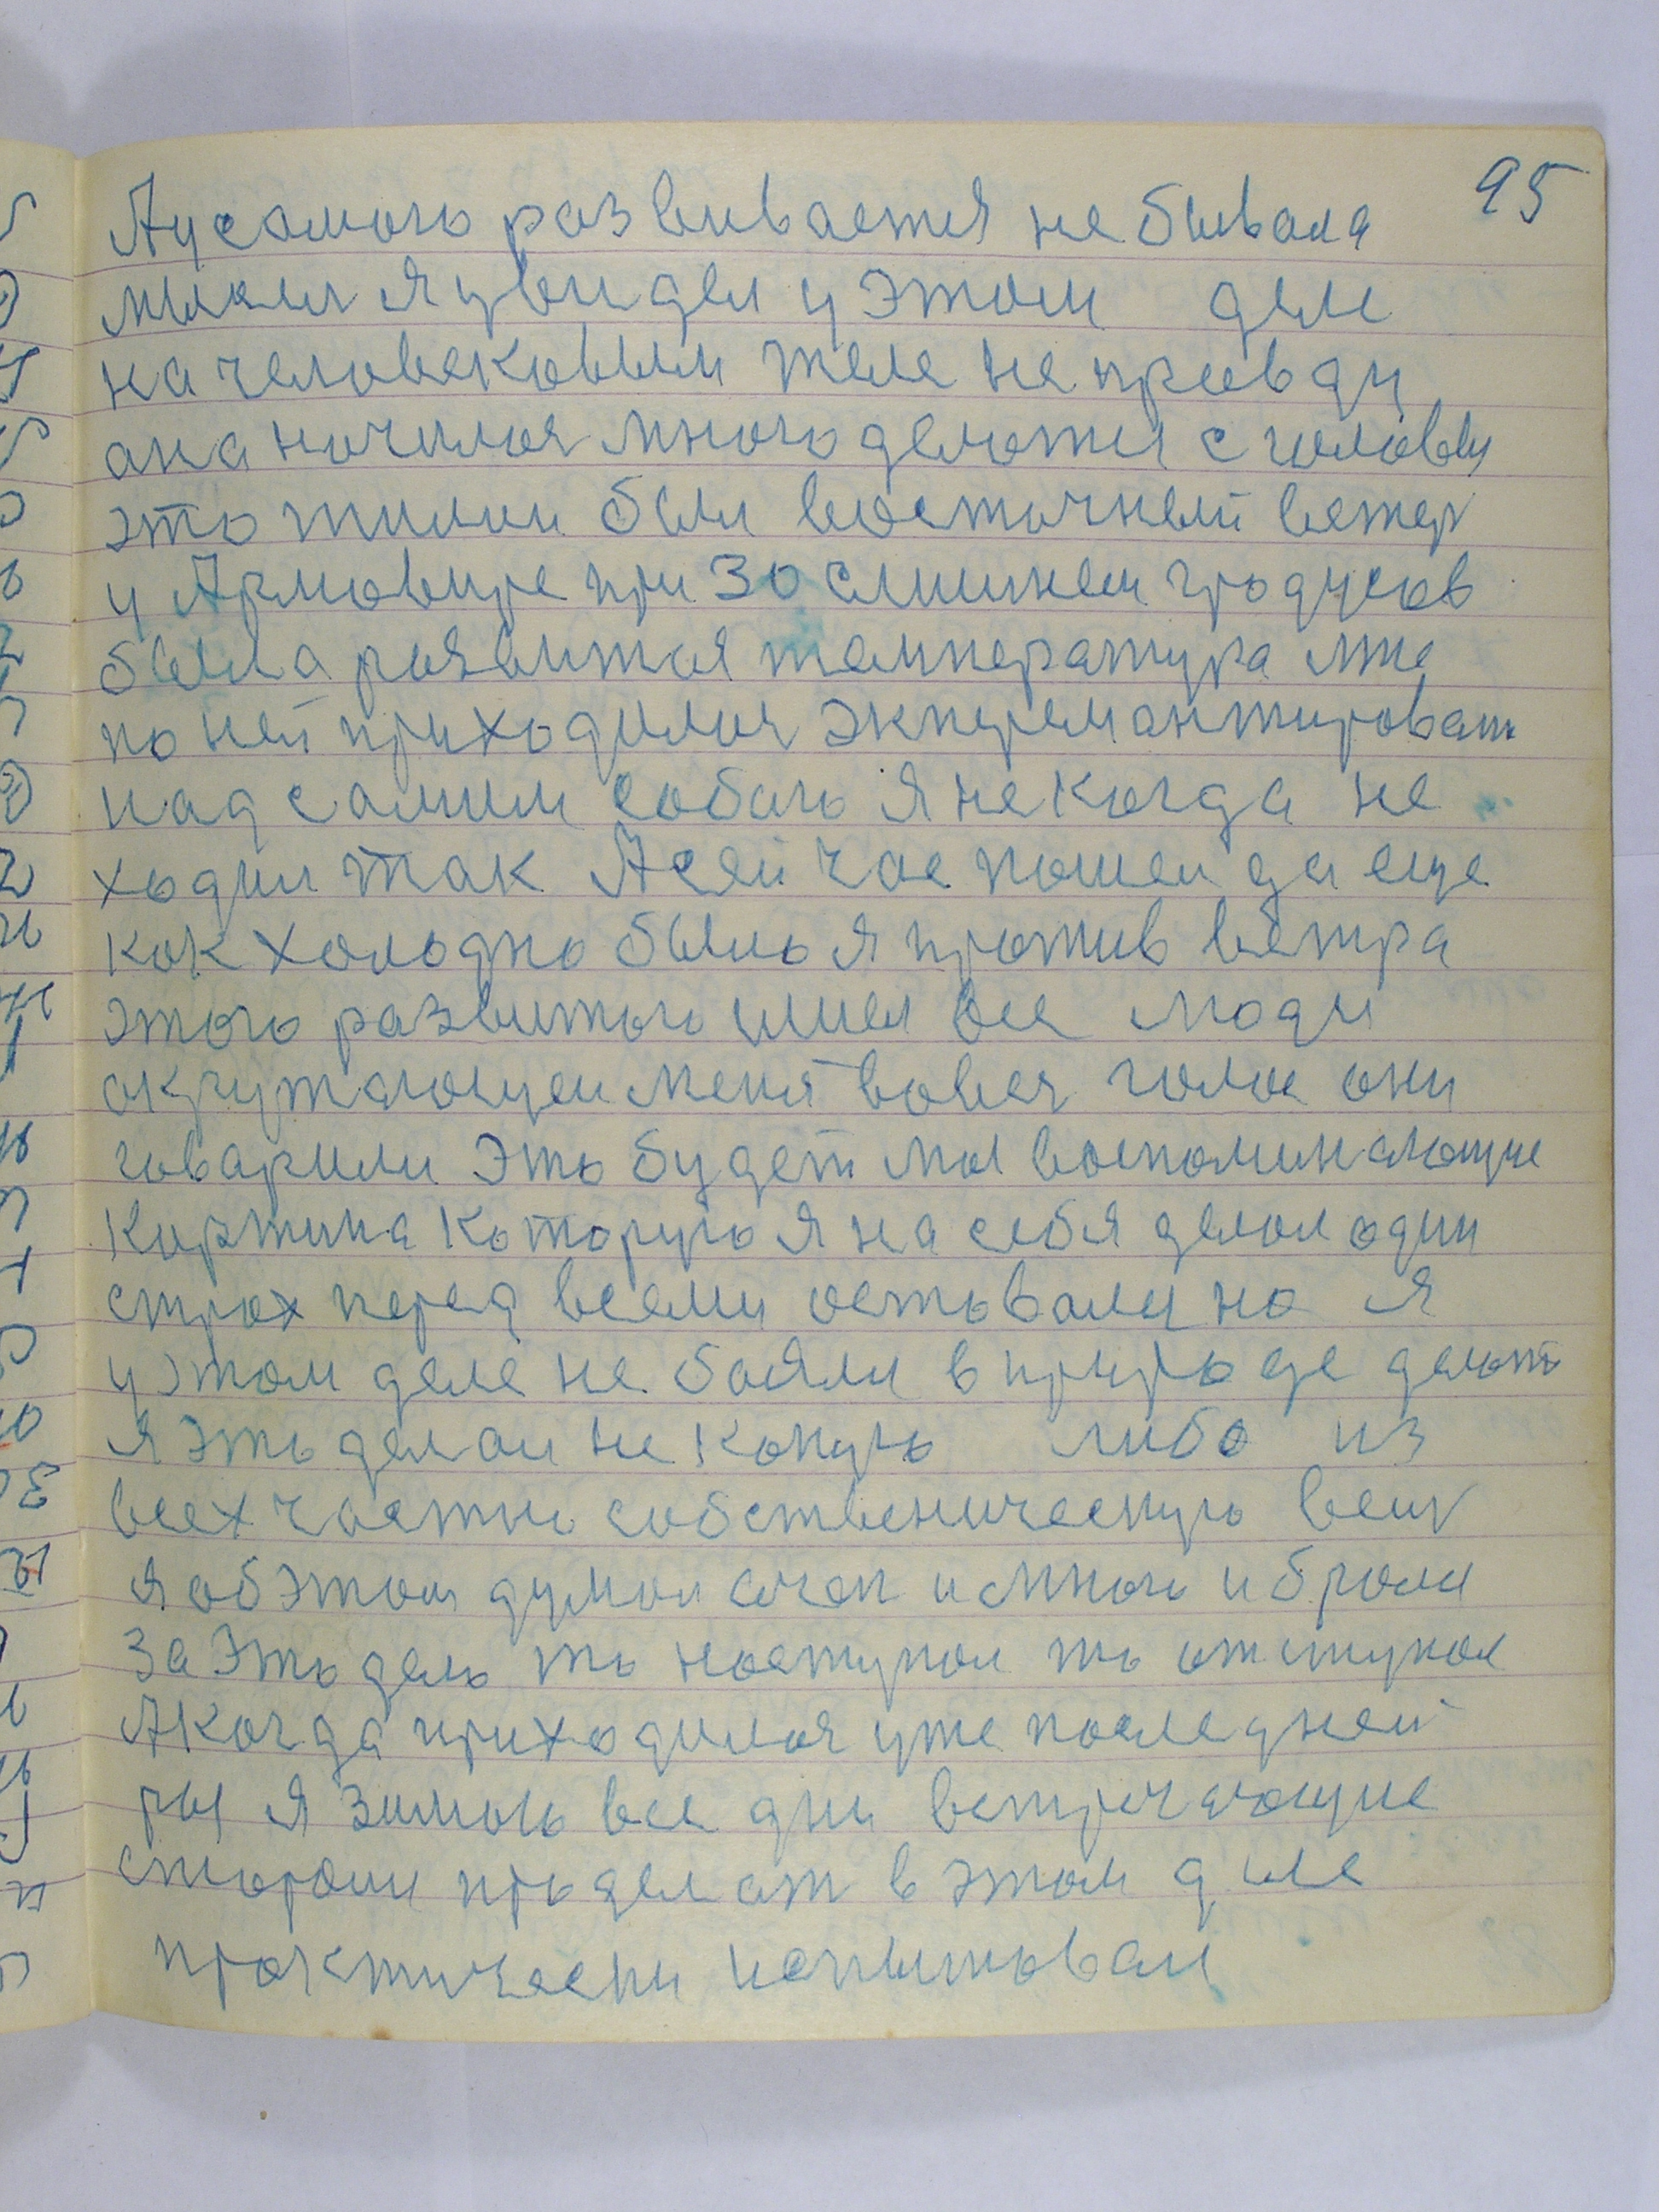 95
А у самого развивается не бывала
мысли я увидел у этом деле
на человековым теле не правду
ана началоя много делатся с головы
это тилои был восточный ветер
у Армовире при 30 слишнем градусов
была развитоя температура мне
по ней приходилоя эксперемантироват
над самим собаю я некогда не
ходил так А сей час пошел да еще
как холодно было я против ветра
этого развитого шшел все люди
окружающеи меня вовея голос они
говарили это будет мол воспоминающие
картина которую я на себя делол один
страх перед всеми оставался но я
у этом деле не боялся в природе делать
я это делал не какую либо из
всех частню собственическую вещ
я об этом думол очен и много и бролся
за это дело то наступол то отступол
А когда приходилоя уже последней
раз я зимою все дни встречающие
стороны проделат в этом деле
практически испытовал